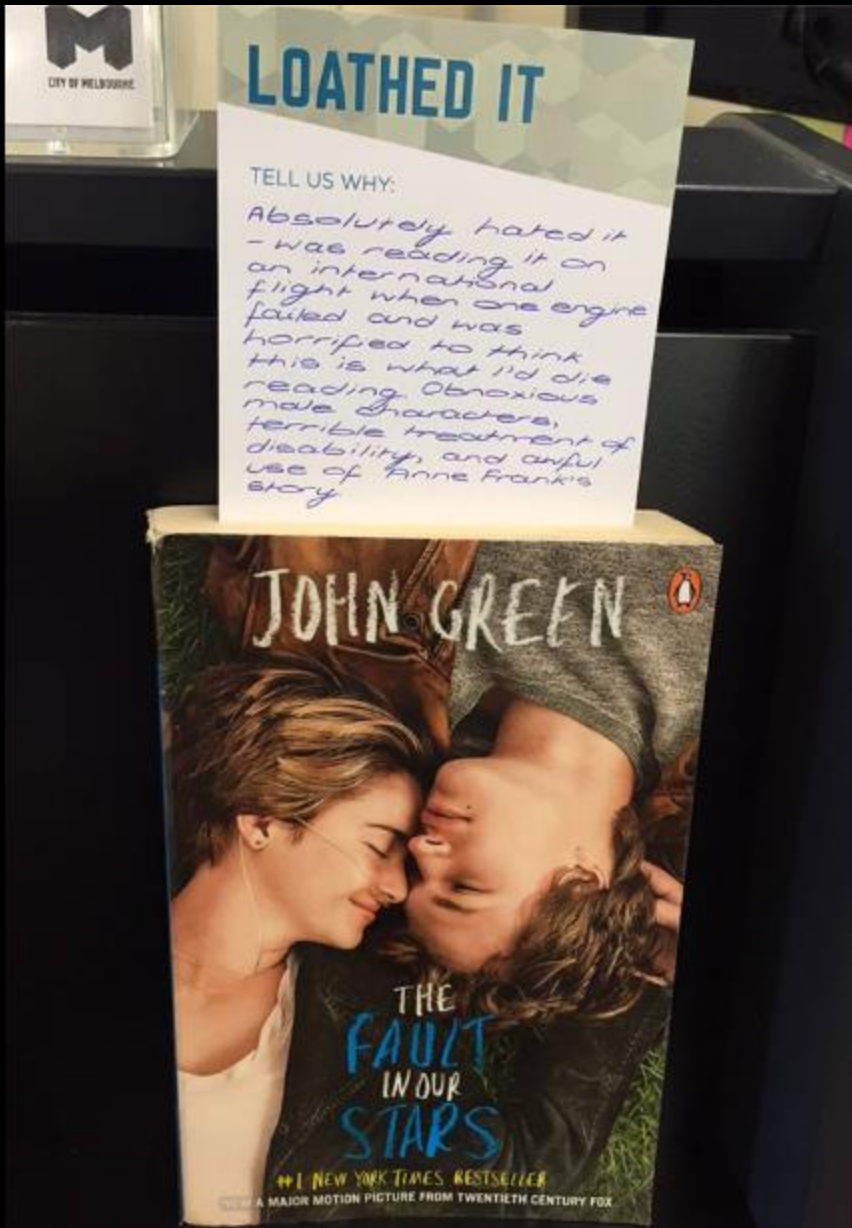 CITY OF MELBOURNE
LOATHED IT
TELL US WHY:
Absolutely hated it
- was reading it on
an international
flight when one engine
failed and was
horrified to think
this is what I'd die
reading. Obnoxious
male characters,
terrible treatment of
disability, and awful
use of Anne Frank's
story
JOHN GREEN
THE
FAULT
IN OUR
STARS
#1 NEW YORK TIMES BESTSELLER
NOW A MAJOR MOTION PICTURE FROM TWENTIETH CENTURY FOX